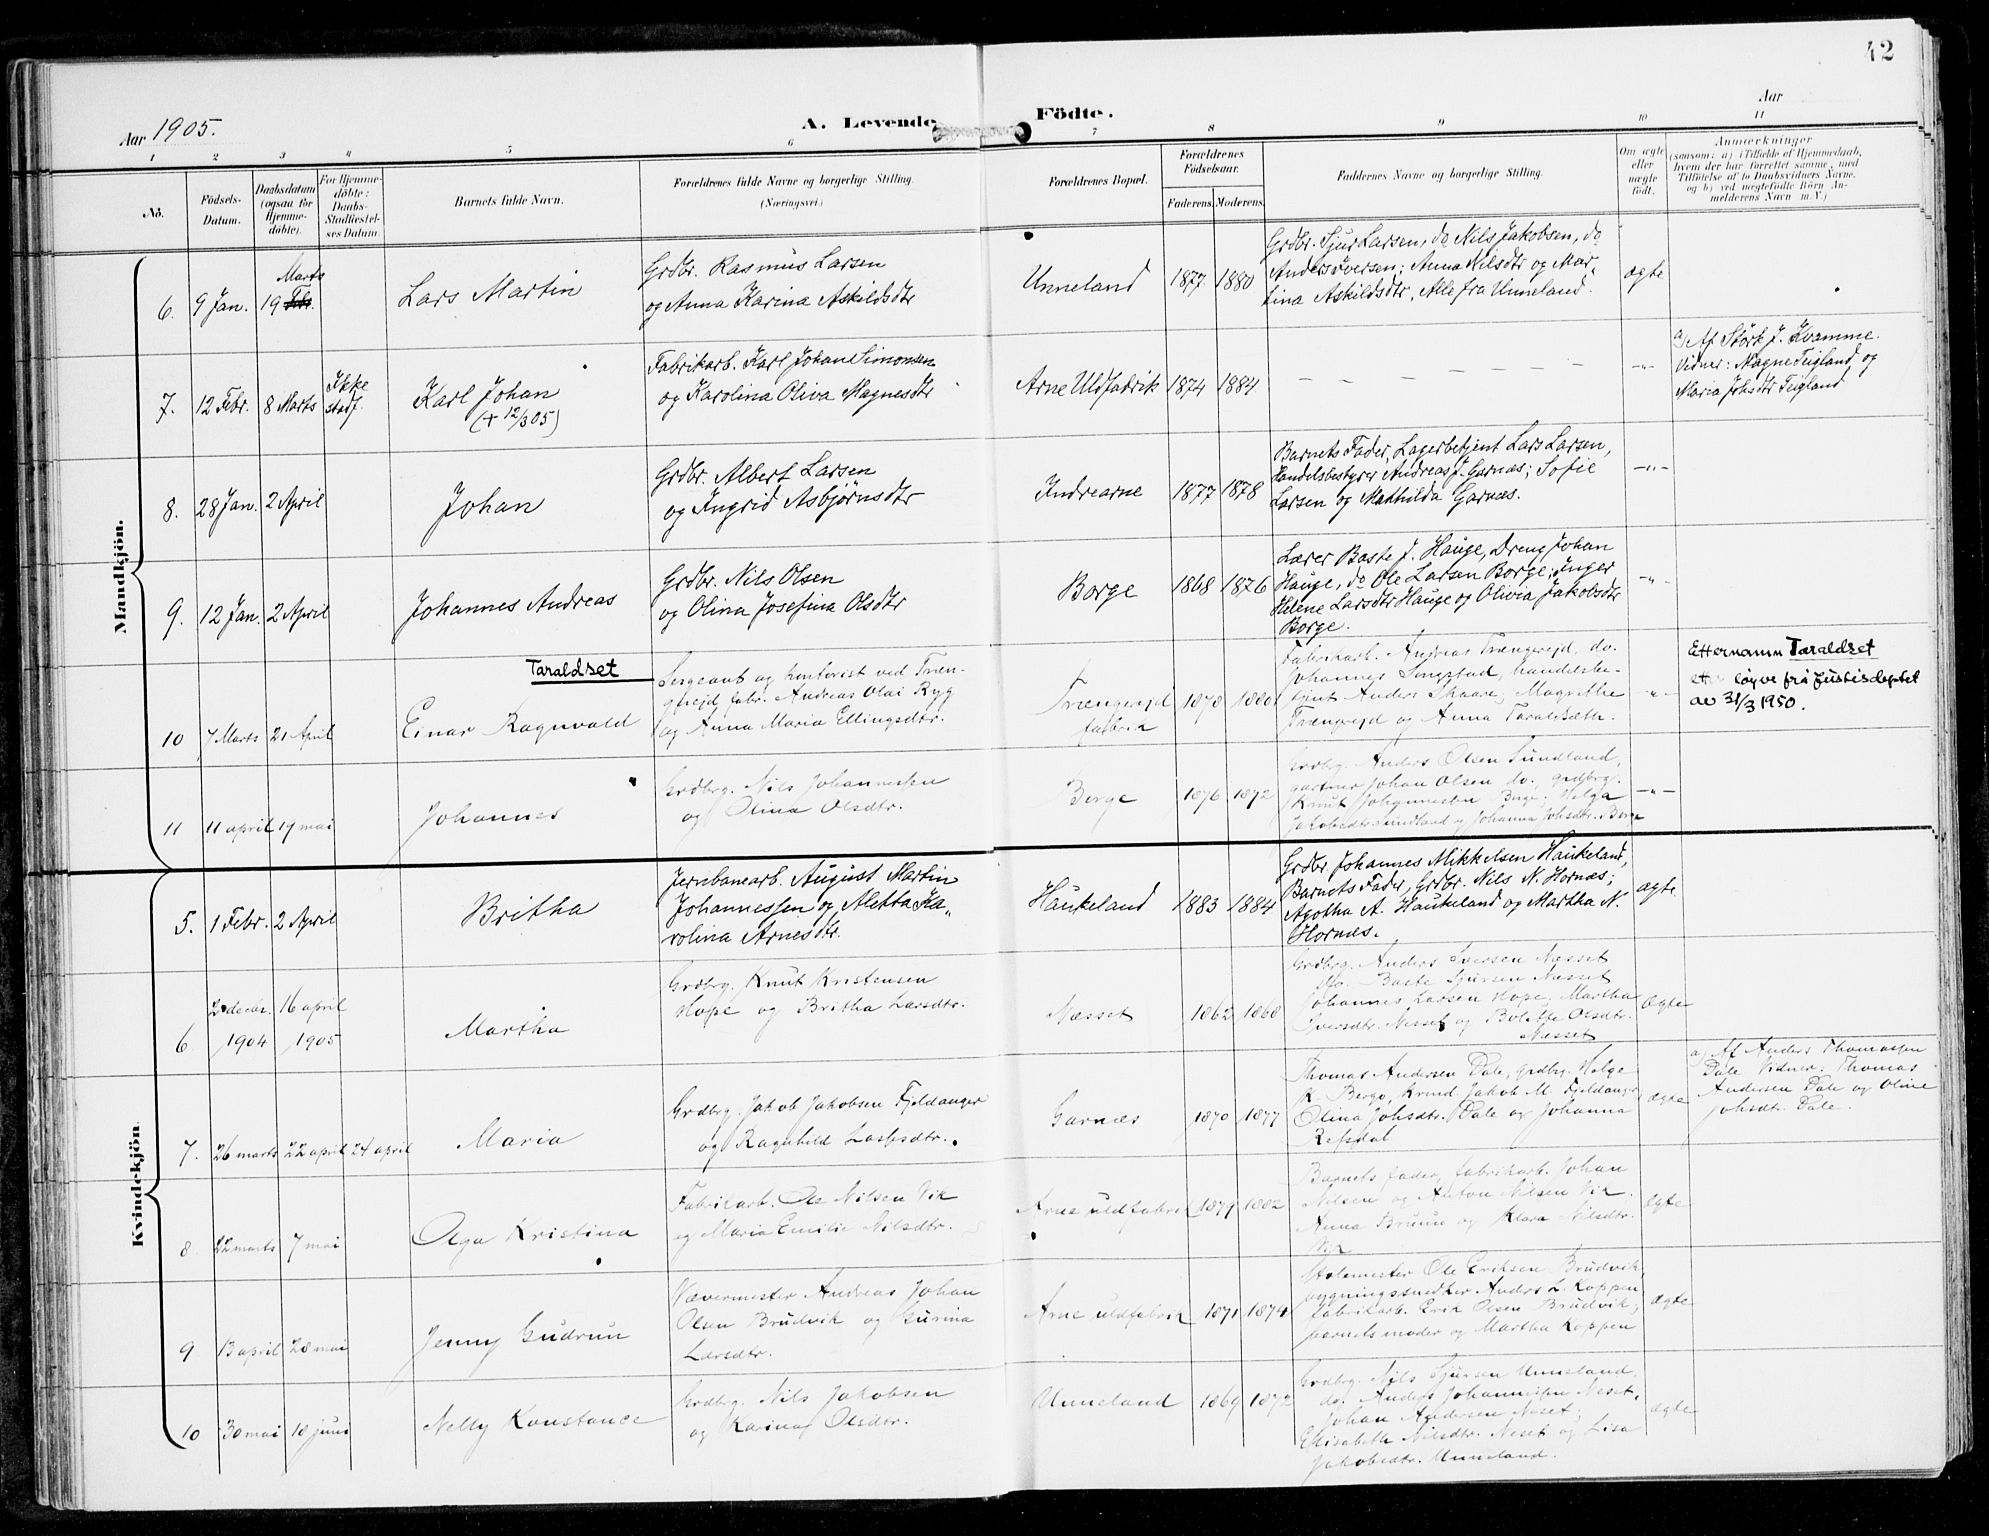 42
Aar 1905.
A. Levende Födte.
Aar
1 2 3 4 5 6 7 8 9 10 11
No.
Födsels-
Datum.
Daabsdatum
(ogsaa for
Hjemme-
døbte).
For Hjemme-
døbte:
Daabs-
Stadfæstel-
ses Datum.
Barnets fulde Navn.
Forældrenes fulde Navne og borgerlige Stilling.
(Næringsvei.)
Forældrenes Bopæl.
Forældrenes
Födselsaar.
Faderens. Moderens.
Faddernes Navne og borgerlige Stilling.
Om ægte
eller
uægte
födt.
Anmærkninger
(saasom: a) i Tilfælde af Hjemmedaab,
hvem der har forrettet samme, med
Tilföielse af to Daabsvidners Navne,
og b) ved uægtefödte Börn An-
melderens Navn m.V.)
Mandkjön.
6. 9 Jan. 19 Febr. Marts
Lars Martin
Grdbr. Rasmus Larsen
og Anna Karina Askildsdtr
Unneland 1877 1880
Grdbr. Sjur Larsen, do Nils Jakobsen, do
Anders Iversen; Anna Nilsdtr og Mar-
tina Askildsdtr, Alle fra Unneland.
ægte
7. 12 Febr. 8 Marts Ikke
stadf.
Karl Johan
(+ 12/3 05)
Fabrikarb. Karl Johan Simonsen
og Karolina Oliva Magnesdtr
Arne Uldfabrik 1874 1884
— — — — — — —
-"-
a) Af Störk J. Kvamme.
Vidner: Magne Teigland og
Maria Johsdtr Teigland
8. 28 Jan. 2 April
Johan
Grdbr. Albert Larsen
og Ingrid Asbjørnsdtr
Indrearne 1877 1878
Barnets Fader, Lagerbetjent Lars Larsen,
Handelsbestyrer Andreas J. Garnæs; Sofie
Larsen og Mathilda Garnæs.
-"-
9. 12 Jan. 2 April
Johannes Andreas
Grdbr. Nils Olsen
og Olina Josefina Olsdtr
Borge 1868 1876
Lærer Baste J. Hauge, Dreng Johan
Hauge, do Ole Larsen Borge; Inger
Helene Larsdtr Hauge og Olivia Jakobsdtr
Borge.
-"-
10 7 Marts 21 April
Taraldset
Einar Ragnvald
Sergeant og kontorist ved Træn-
greid fabr. Andreas Olai Ryg
og Anna Maria Ellingsdtr.
Trængereid
fabrik 1878 1880
Fabrikarb. Andreas Trængereid, do.
Johannes Langstad, handelsbe-
tjent Anders Skaare; Magrethe
Trængereid og Anna Taraldsæth.
-"-
Etternamn Taraldset
løyve frå Justisdeptet
av 31/3 1950.
11 11 april 19 mai
Johannes
Grdbrg. Nils Johannessen
og Olina Olsdtr.
Borge 1876 1872
Grdbrg. Anders Olsen Sundland,
gartner Johan Olsen do., grdbrg.
Knut Johannessen Borge; Helga
Jakobsdtr. Sundland og Johanna Johsdtr. Borge
-"-
Kvindekjön
5. 1 Febr. 2 April
Britha
Jernbanearb. August Martin
Johannessen og Aletta Ka-
rolina Arnesdtr.
Haukeland 1883 1884
Grdbr Johannes Mikkelsen Haukeland,
Barnets Fader, Grdbr. Nils N. Hornæs;
Agotha A. Haukeland og Martha N.
Hornæs.
ægte
6 2 decbr. 16 april
1904 1905
Martha
Grdbrg. Knut Kristensen
Hope og Britha Larsdtr.
Næsset 1862 1868
Grdbrg. Anders Iversen Næsset
do. Baste Sjursen Næsset
Johannes Larsen Hope; Martha
Iversdtr. Nesset og Bolette Olsdtr.
Næsset
ægte
7. 26 marts 22 april 24 april
Maria
Grdbrg. Jakob Jakobsen Fjeldanger
og Ragnhild Lassesdtr.
Garnæs 1870 1877
Thomas Andersen Dale, grdbrg. Helge
K. Borge, Krmd. Jakob M. Fjeldanger
Olina Johsdtr. Dale og Johanna
Refsdal
ægte
a) Af Anders Thomassen
Dale Vidner: Thomas
Andersen Dale og Oline
Johsdtr. Dale.
8. 22 marts 7 mai
Olga Kristina
Fabrikarb. Ole Nilsen Vik
og Maria Emilie Nilsdtr.
Arne uldfabrik 1879 1882
Barnets fader, fabrikarb. Johan
Nilsen og Anton Nilsen Vik.
Anna Bruun og Klara Nilsdtr.
Vik
ægte
9 13 april 28 mai
Jenny Gudrun
Vævermester Andreas Johan
Olsen Brudvik og Gurina
Larsdtr.
Arne uldfabrik 1871 1874
Stolemester Ole Eriksen Brudvik,
bygningssnedker Anders L. Koppen
fabrikarb. Erik Olsen Brudvik;
barnets moder og Martha Koppen
ægte
10 30 mai 18 juni
Nelly Konstance
Grdbrg. Nils Jakobsen
og Karina Olsdtr.
Unneland 1869 1872
Grdbrg. Nils Sjursen Unneland,
do. Anders Johannessen Neset,
Johan Andersen Neset;
Elisabeth Nilsdtr. Neset og Lisa
Jakobsdtr. Unneland.
ægte